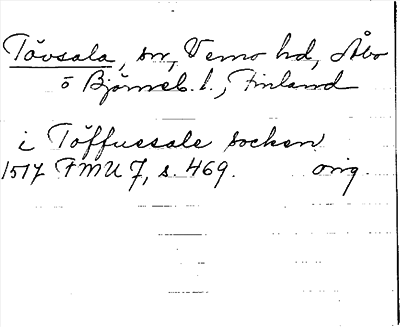 Tövsala, sn, Vemo hd, Åbo
o Björneb. l., Finland
i Töffuesale socken
1517 FMU 7, s. 469. orig.